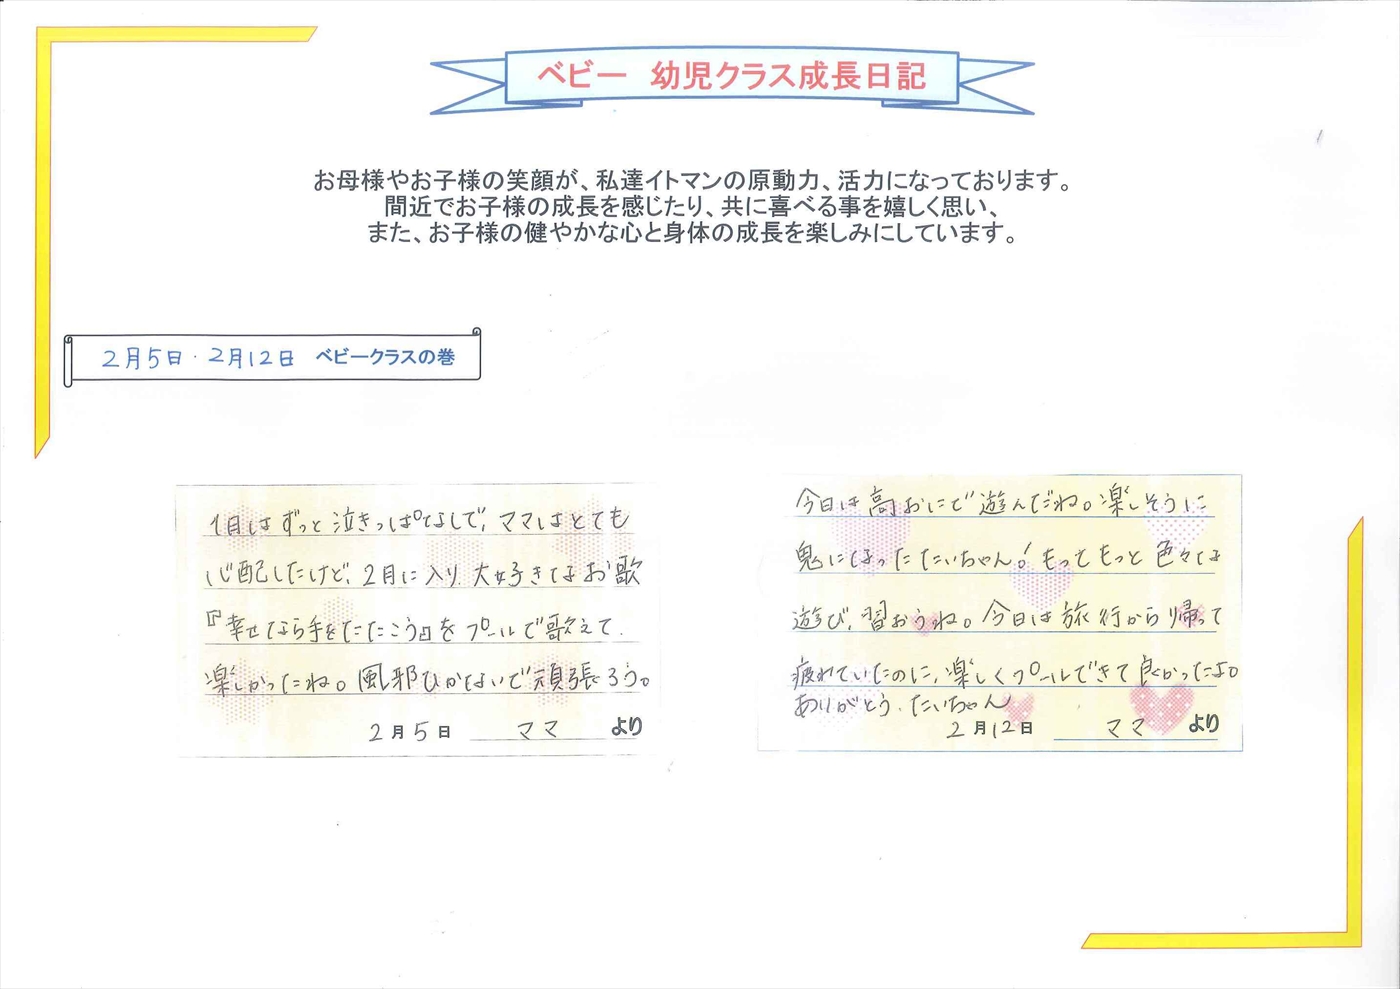 ベビー　幼児クラス成長日記
お母様やお子様の笑顔が、私達イトマンの原動力、活力になっております。
間近でお子様の成長を感じたり、共に喜べる事を嬉しく思い、
また、お子様の健やかな心と身体の成長を楽しみにしています。
2月5日・2月12日　ベビークラスの巻
1月はずっと泣きっぱなしで、ママはとても
心配したけど、2月に入り、大好きなお歌
『幸せなら手をたたこう』をプールで歌えて、
楽しかったね。風邪ひかないで頑張ろう。
2月5日　ママ　より
今日は高おにで遊んだね。楽しそうに
鬼になったたいちゃん!もってもっと色々な
遊び、習おうね。今日は旅行から帰って
疲れていたのに、楽しくプールできて良かったよ。
ありがとう、たいちゃん
2月12日　ママ　より